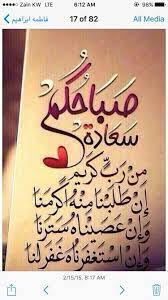 Zain KW LTE 6:12 AM 89%
فاطمه ابراهيم 17 of 82 All Media
صباحكم
سعادة
من رب كريم
إن طلبنا منه أكرمنا
وإن عصيناه سترنا
وإن استغفرناه غفر لنا
2/15/15, 8:17 AM